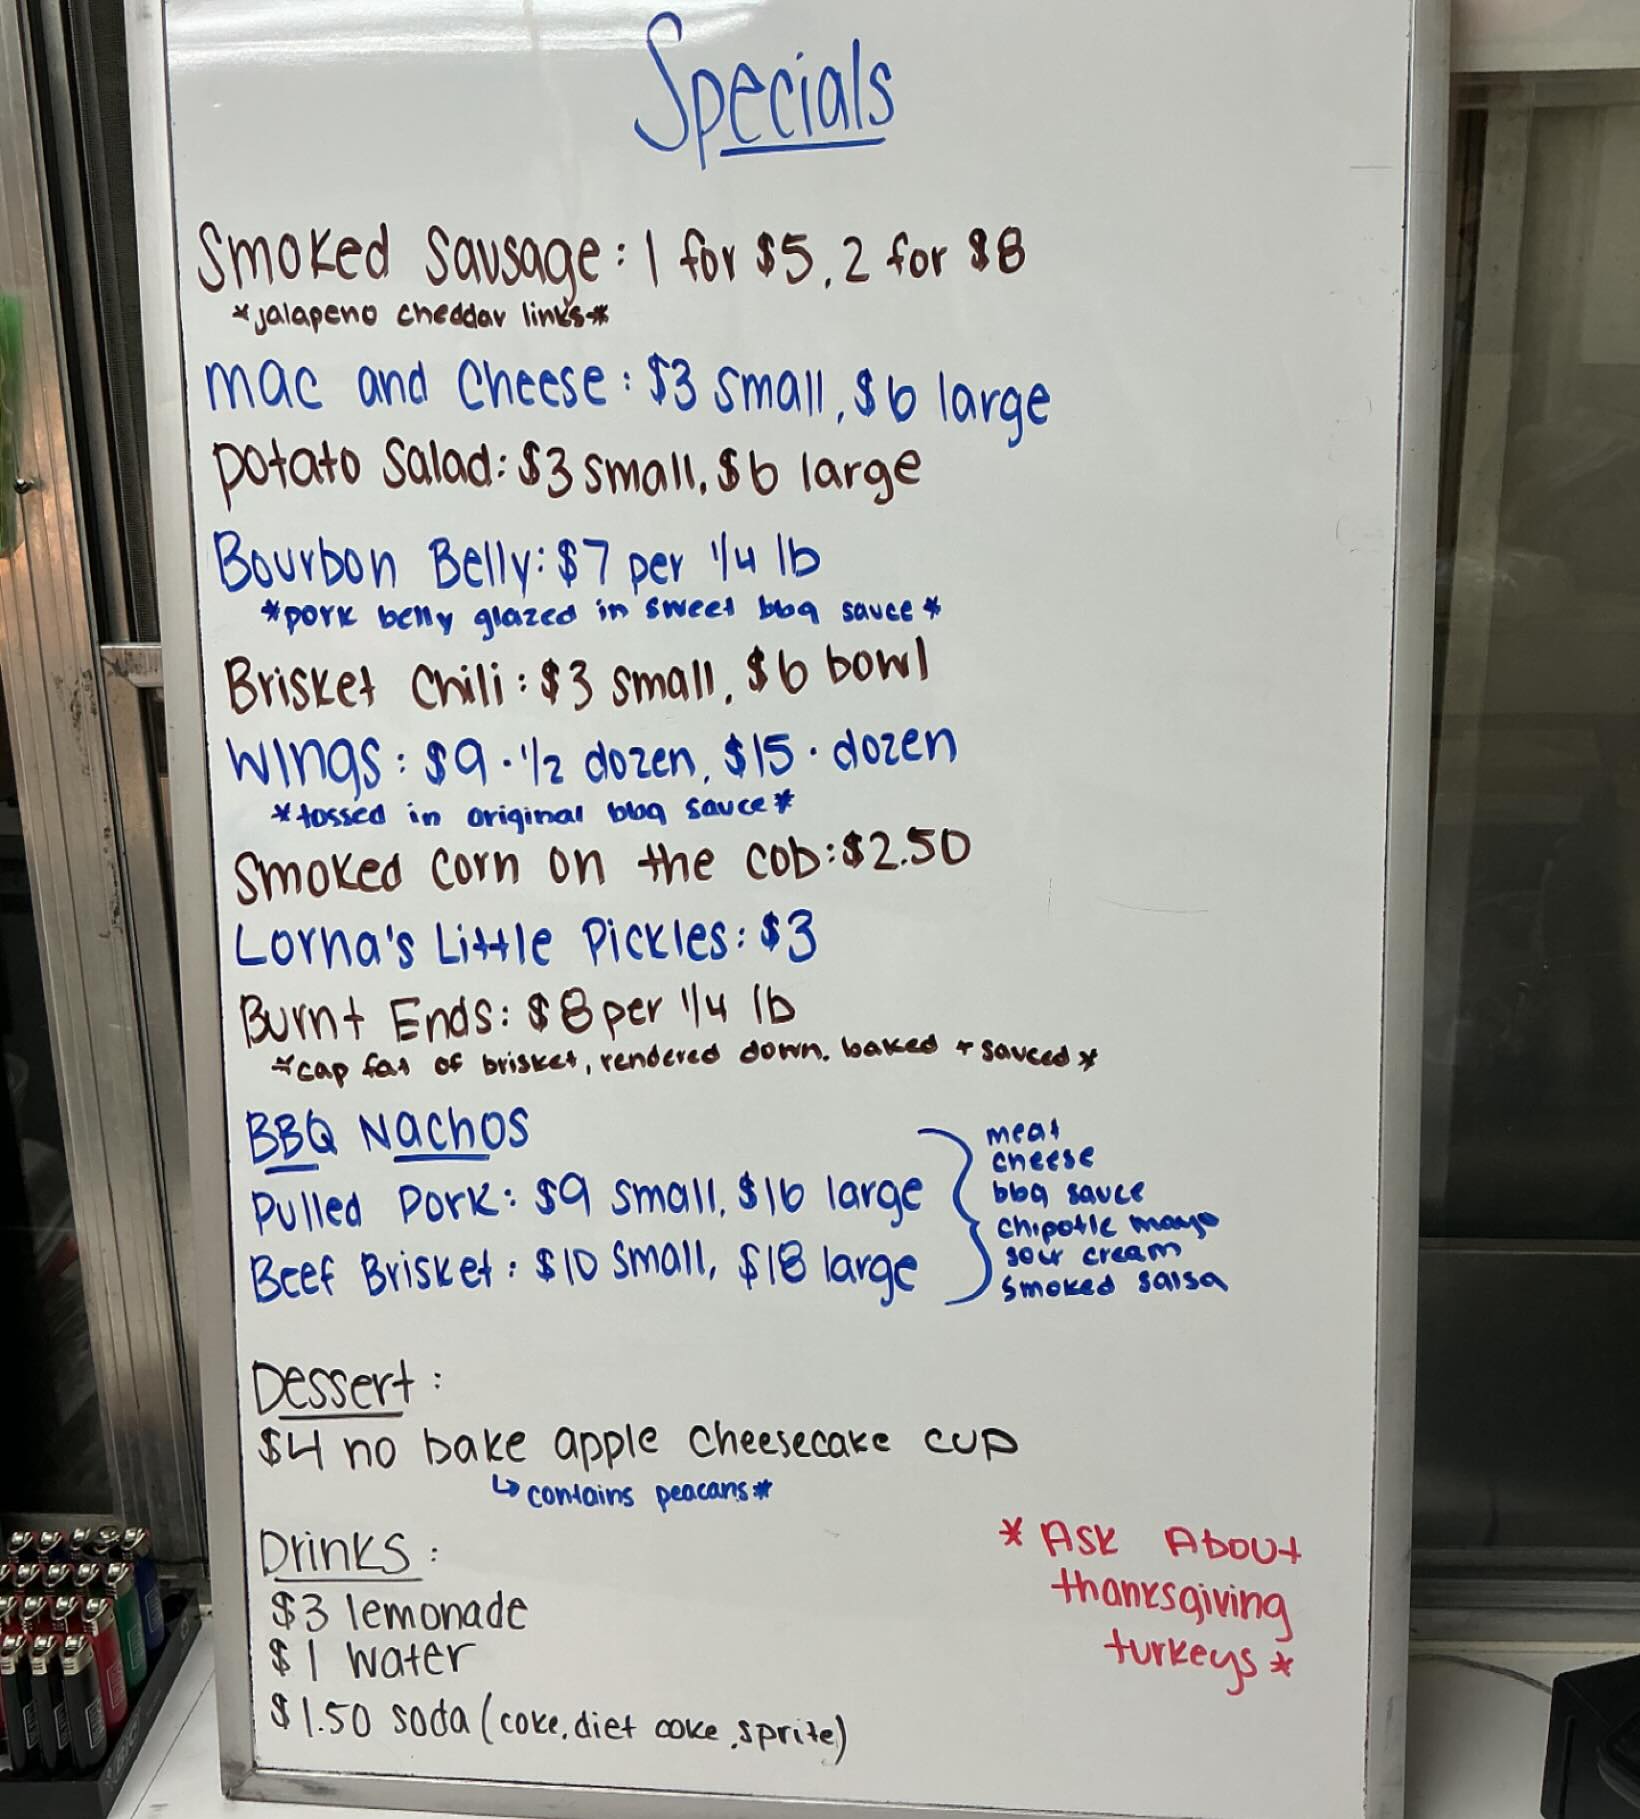 Specials
Smoked Sausage: 1 for $5, 2 for $8
*jalapeno cheddar links*
mac and cheese: $3 small, $6 large
potato salad: $3 small, $6 large
Bourbon Belly: $7 per 1/4 lb
*pork belly glazed in sweet bbq sauce*
Brisket Chili: $3 small, $6 bowl
Wings: $9 · 1/2 dozen, $15 · dozen
*tossed in original bbq sauce*
Smoked corn on the cob: $2.50
Lorna's Little Pickles: $3
Burnt Ends: $8 per 1/4 lb
*cap fat of brisket, rendered down, baked + sauced*
BBQ Nachos
Pulled Pork: $9 small, $16 large
Beef Brisket: $10 small, $18 large
meat
cheese
bbq sauce
chipotle mayo
sour cream
smoked salsa
Dessert:
$4 no bake apple cheesecake cup
↳ contains peacans*
Drinks:
$3 lemonade
$1 water
$1.50 soda (coke, diet coke, sprite)
* Ask About
thanksgiving
turkeys *